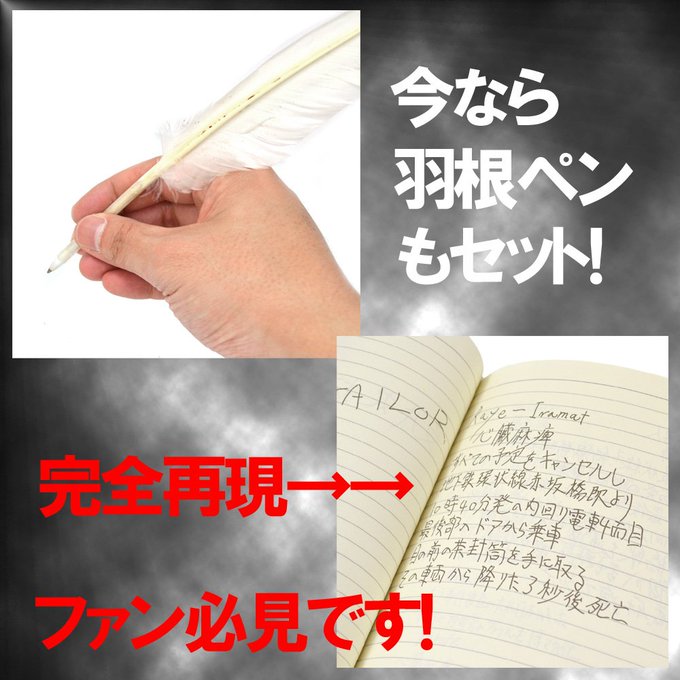 今なら
羽根ペン
もセット!
完全再現→→
ファン必見です!
AILOR
Raye-Iramat
心臓麻痺
すべての予定をキャンセルし
地下鉄環状線赤坂橋駅より
10時40分発の内回り電車4両目
最後部ハドアから乗車
目の前の茶封筒を手に取る
その車両から降りた3秒後死亡